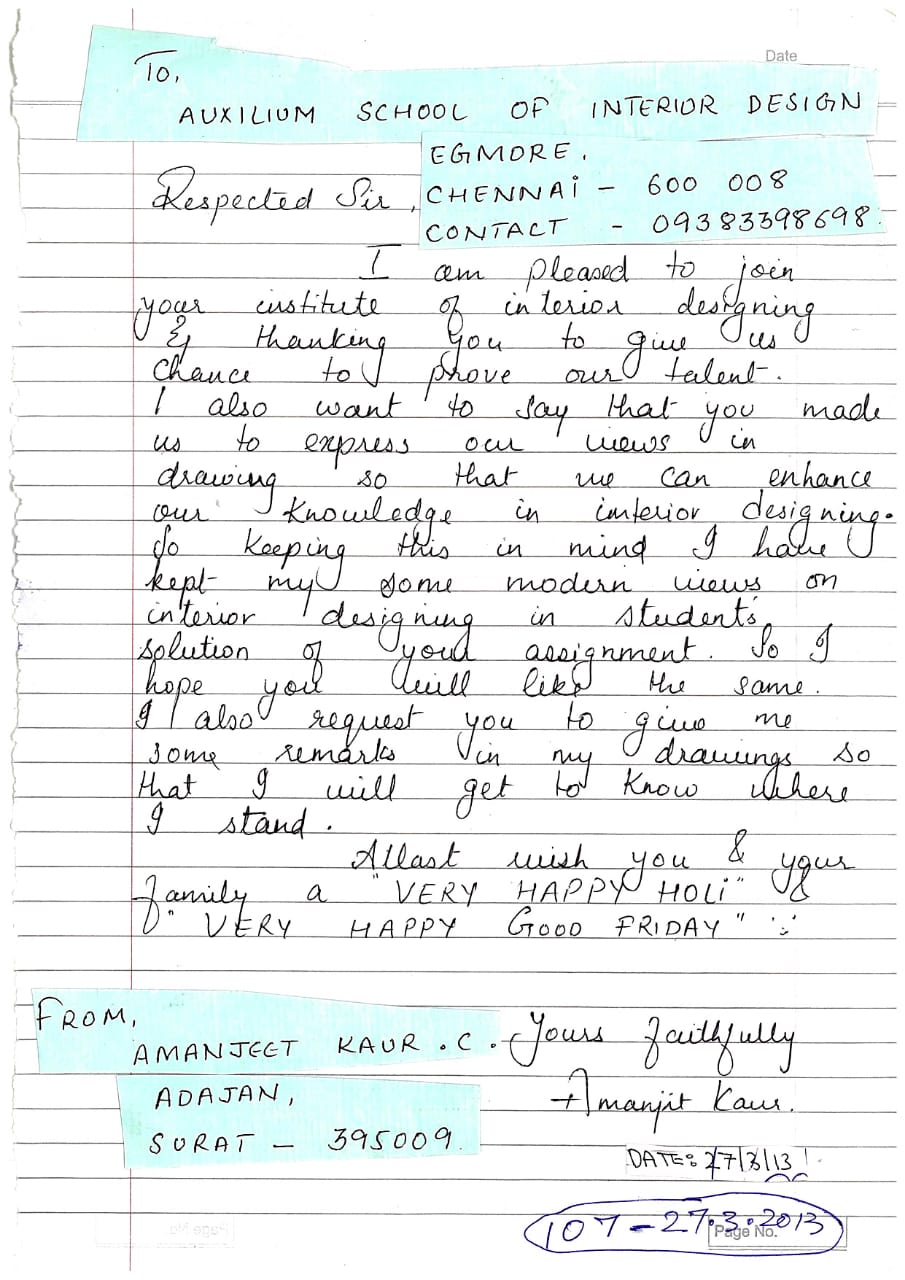 Date
TO,
AUXILIUM SCHOOL OF INTERIOR DESIGN
EGMORE.
CHENNAI - 600 008
CONTACT - 09383398698.
Respected Sir,
I am pleased to join
your institute of interior designing
& thanking you to give us
chance to prove our talent.
I also want to say that you made
us to express our views in
drawing so that we can enhance
our knowledge in interior designing.
So keeping this in mind I have
kept my some modern views on
interior designing in student's
solution of your assignment. So I
hope you will like the same.
I also request you to give me
some remarks in my drawings so
that I will get to know where
I stand.
Atlast wish you & your
family a "VERY HAPPY HOLI" &
"VERY HAPPY GOOD FRIDAY"
FROM,
AMANJEET KAUR.C.
ADAJAN,
SURAT - 395009
Yours faithfully
Amanjit Kaur.
DATE: 27/3/13
107-27.3.2013
Page No.
Page No